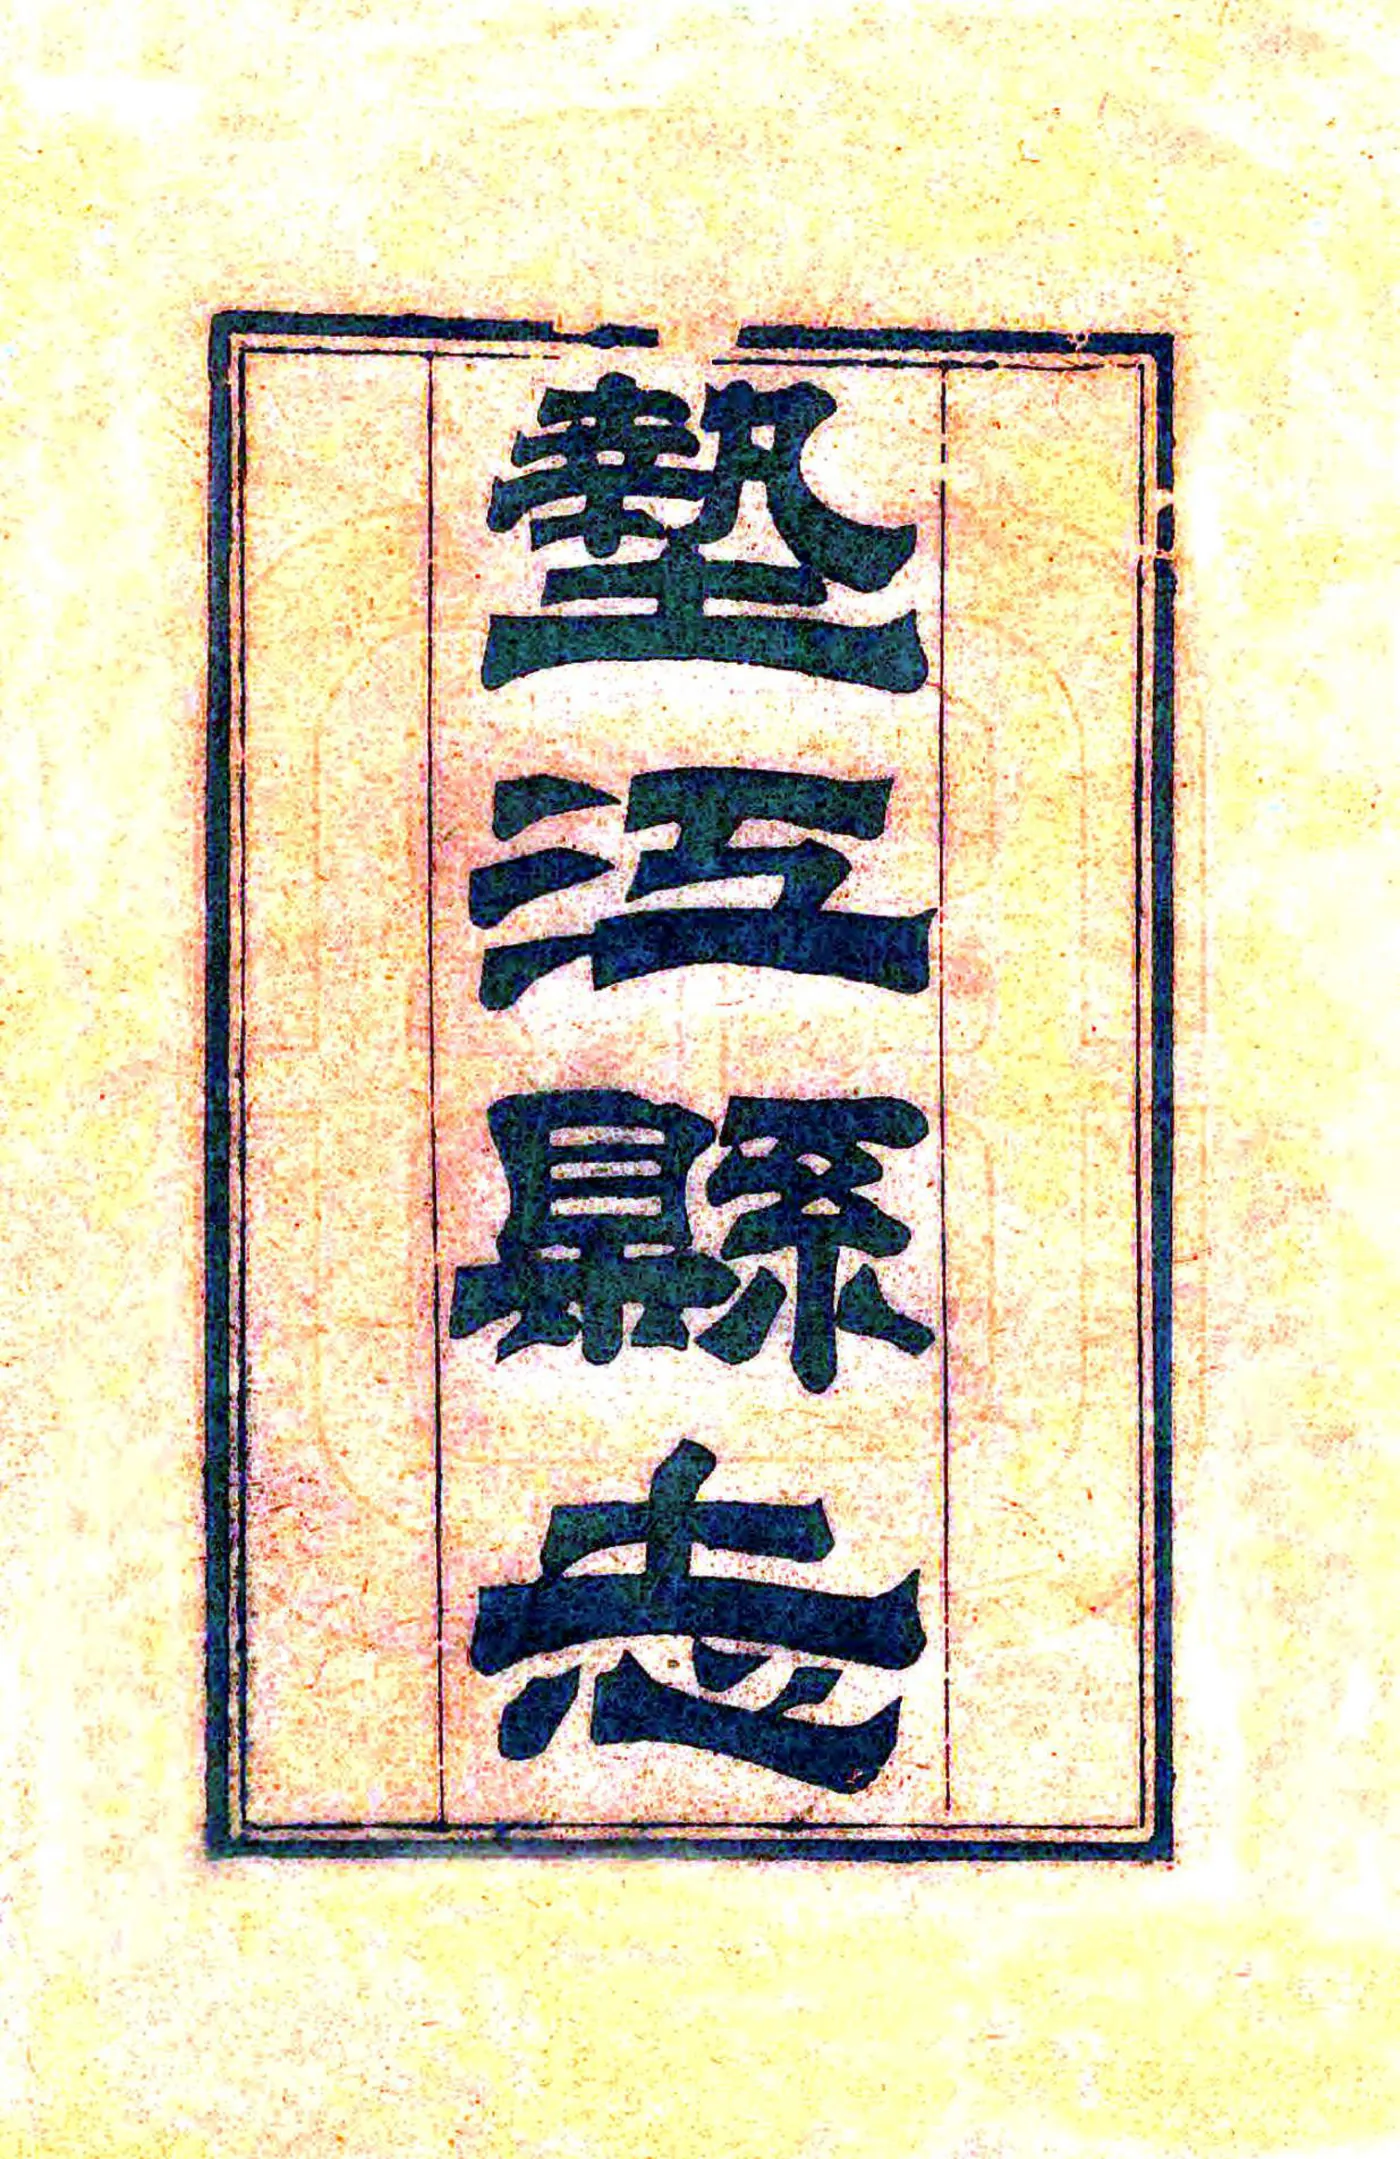 墊江縣志